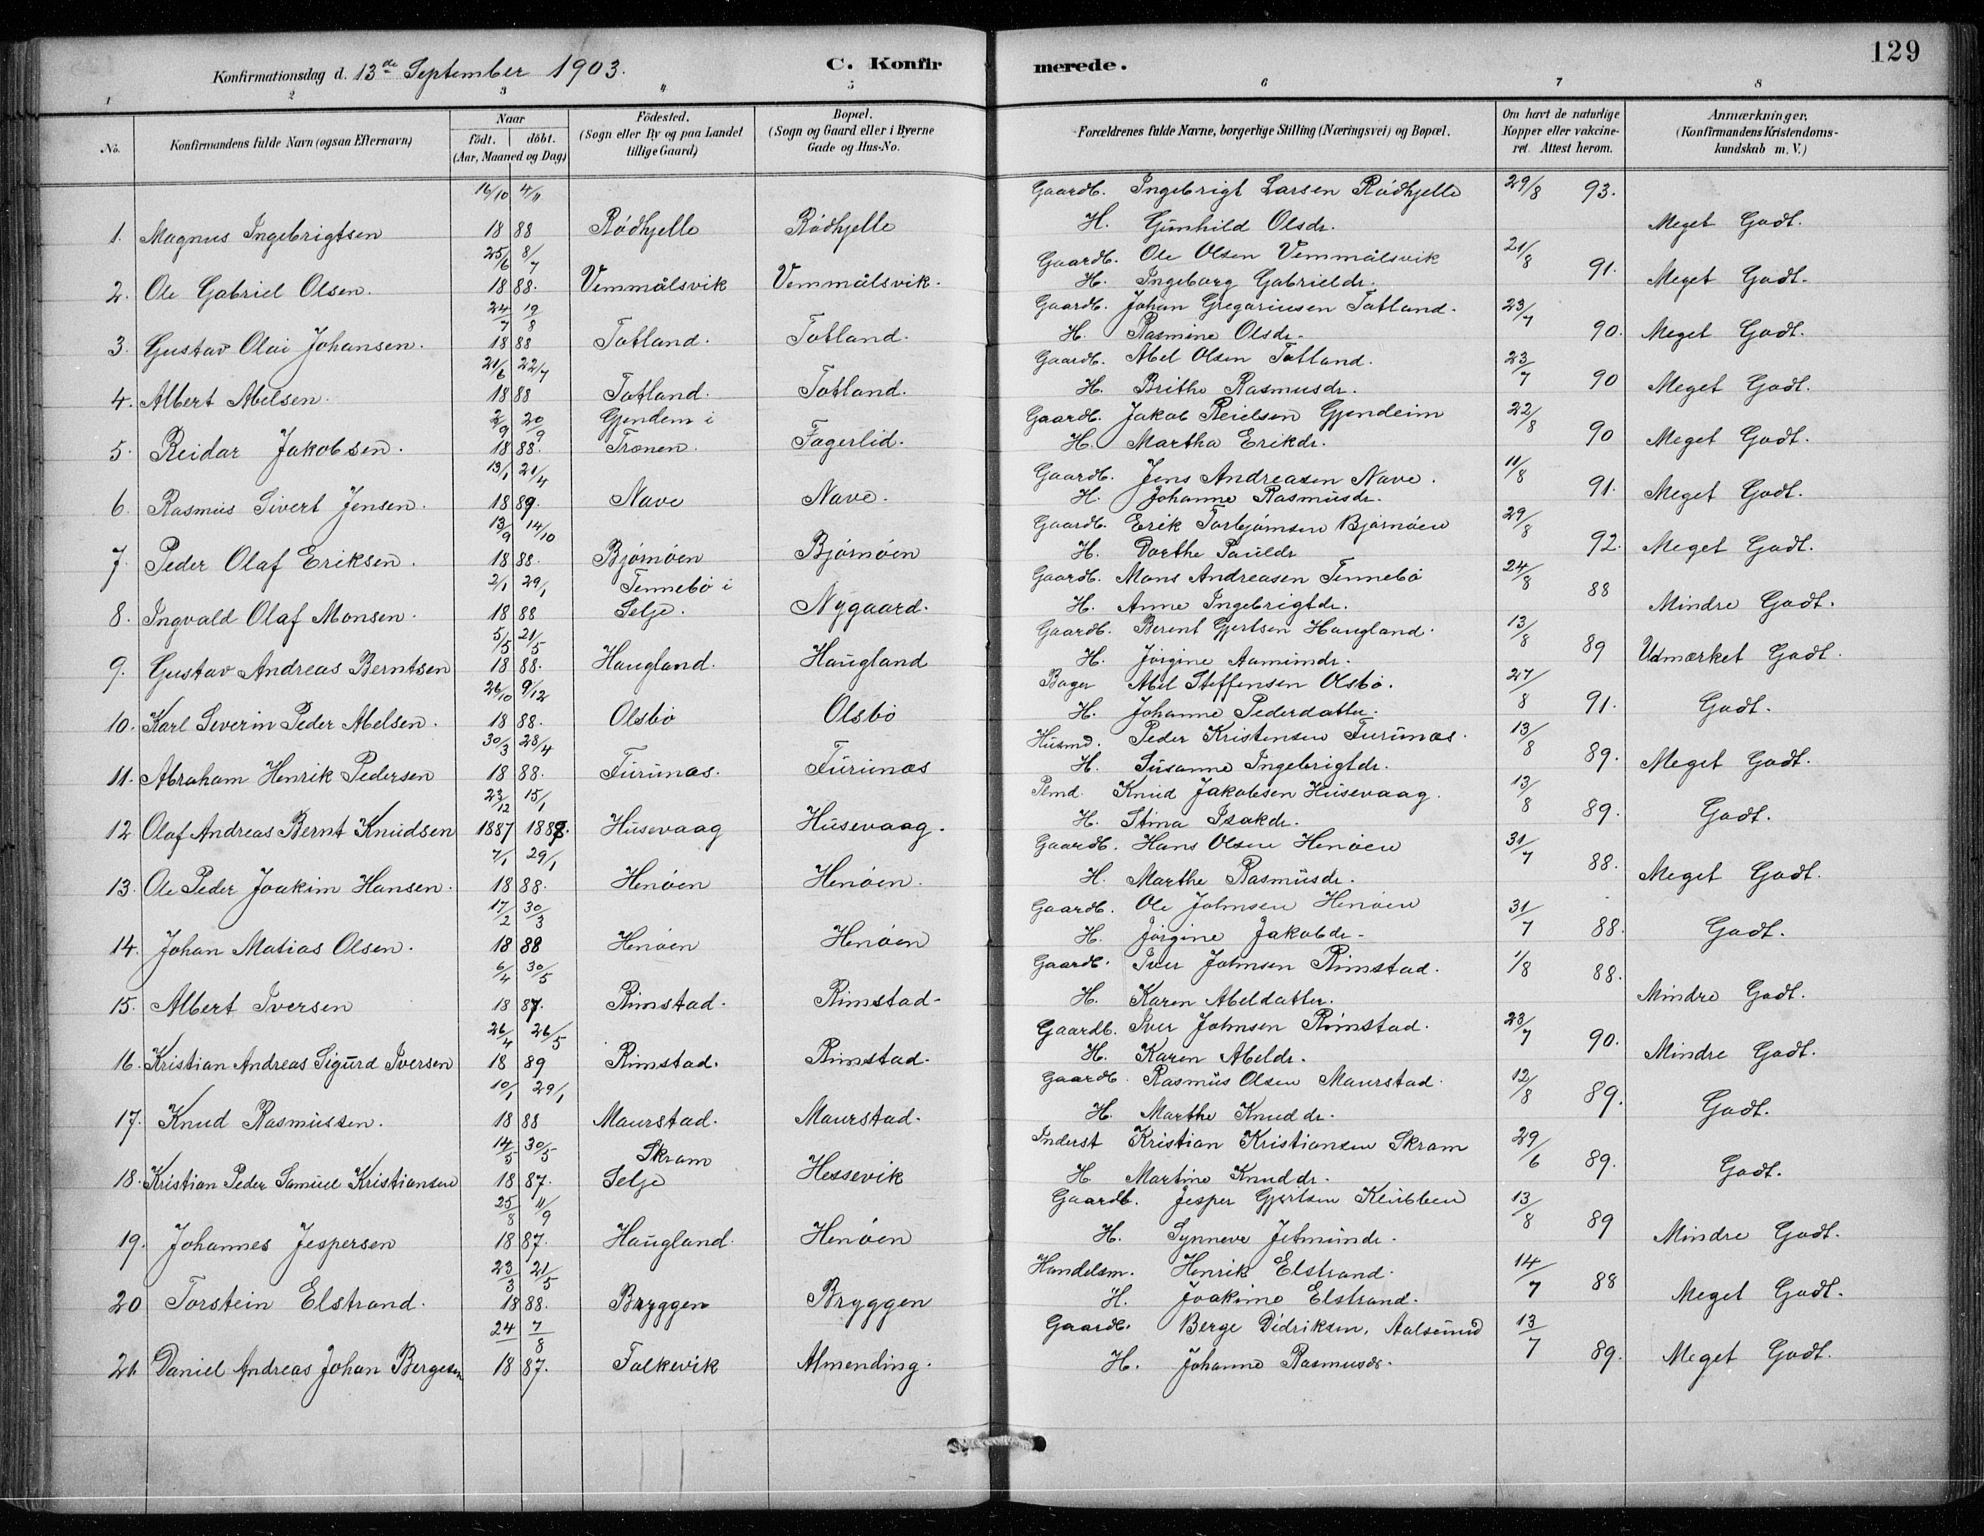 129
Konfirmationsdag d. 13de September 1903. C. Konfirmerede.
1 2 3 4 5 6 7 8
No. Konfirmandens fulde Navn (ogsaa Efternavn) Naar født. døbt. (Aar, Maaned og Dag) Fødested. (Sogn eller By og paa Landet tillige Gaard) Bopæl. (Sogn og Gaard eller i Byerne Gade og Hus-No. Forældrenes fulde Navne, borgerlige Stilling (Næringsvei) og Bopæl. Om havt de naturlige Kopper eller vakcineret. Attest herom. Anmærkninger. (Konfirmandens Kristendomskundskab m. V.)
16/10 4/11 Gaardb. Ingebrigt Larsen Rödhjelle 29/8 93.
1. Magnus Ingebrigtsen 18 88 Rödhjelle Rödhjelle H. Gunhild Olsdr. Meget Godt.
25/6 8/7 Gaardb. Ole Olsen Vemmälsvik 21/8 91.
2. Ole Gabriel Olsen. 18 88. Vemmälsvik Vemmälsvik. H. Ingeborg Gabrieldr. Meget Godt.
24/7 19/8 Gaardb. Johan Gregoriusen Totland. 23/7 90.
3. Gustav Olai Johansen. 18 88 Totland. Totland. H. Rasmine Olsdr. Meget Godt.
21/6 22/7 Gaardb. Abel Olsen Totland. 23/7 90
4. Albert Abelsen. 18 88 Totland. Totland. H. Brithe Rasmusdr. Meget Godt.
2/9 20/9 Gjendem i Gaardb. Jakob Reielsen Gjendeim 22/8 90
5. Reidar Jakobsen. 18 88. Tronen. Fagerlid. H. Martha Erikdr. Meget Godt.
13/1 21/4 Gaardb. Jens Andreasen Nave. 11/8 91.
6. Rasmus Sivert Jensen. 18 89. Nave Nave. H. Johanne Rasmusdr. Meget Godt.
13/9 14/10 Gaardb. Erik Torbjørnsen Bjørnøen 29/8 92.
7. Peder Olaf Eriksen. 18 88. Bjørnøen Bjørnøen H. Dorthe Pauldr Meget Godt.
2/1 29/1 Tennebö i Gaardb. Mons Andreasen Tennebö 24/8 88
8. Ingvald Olaf Monsen. 18 88 Selje. Nygaard. H. Anne Ingebrigtdr. Mindre Godt.
5/5 21/5 Gaardb. Berent Gjertsen Haugland. 13/8 89
9. Gustav Andreas Berntsen 18 88. Haugland. Haugland H. Jörgine Aamundr. Udmærket Godt.
26/10 9/12 Bager Abel Steffensen Olsbö. 27/8 91.
10. Karl Severin Peder Abelsen. 18 88. Olsbö Olsbö H. Johanne Pederdatter. Godt.
30/3 28/4 Husmd. Peder Kristensen Furunæs. 13/8 89.
11. Abraham Henrik Pedersen 18 88. Furunæs. Furunæs H. Susanne Ingebrigtdr. Meget Godt.
23/12 15/1 Plmd. Knud Jakobsen Husevaag. 13/8 89.
12 Olaf Andreas Bernt Knudsen 1887 1888. Husevaag Husevaag. H. Stina Isakdr. Godt.
7/1 29/1 Gaardb. Hans Olsen Henöen 31/7 88.
13. Ole Peder Joakim Hansen. 18 88. Henöen Henöen. H. Marthe Rasmusdr. Meget Godt.
17/2 30/3 Gaardb. Ole Johnsen Henöen 31/7 88.
14. Johan Matias Olsen. 18 88 Henöen Henöen H. Jörgine Jakobdr. Godt.
6/4 30/5 Gaardb. Iver Johnsen Rimstad. 1/8 88.
15. Albert Iversen 18 87. Rimstad. Rimstad. H. Karen Abeldatter. Mindre Godt.
26/4 26/5 Gaardb. Iver Johnsen Rimstad. 23/7 90.
16. Kristian Andreas Sigurd Iversen 18 89 Rimstad. Rimstad. H. Karen Abeldr. Mindre Godt.
10/1 29/1 Gaardb. Rasmus Olsen Maurstad. 12/8 89.
17. Knud Rasmussen. 18 88 Maurstad. Maurstad. H. Marthe Knuddr. Godt.
14/5 30/5 Skram Inderst Kristian Kristiansen Skram 29/6 89.
18. Kristian Peder Samuel Kristiansen 18 87. Selje Hessevik H Martine Knuddr. Godt.
25/8 11/9 Gaardb. Jesper Gjertsen Klubben 13/8 89
19. Johannes Jespersen 18 87. Haugland. Henöen H. Synneve Jetmundr. Mindre Godt.
23/3 21/5 Handelsm. Henrik Elstrand. 14/7 88
20 Torstein Elstrand. 18 88. Bryggen Bryggen H. Joakime Elstrand. Meget Godt.
24 7/8 Gaardb. Berge Didriksen. Aalsund 13/7 89.
21. Daniel Andreas Johan Bergesen 18 87. Falkevik Almending. H. Johanne Rasmusdr. Meget Godt.